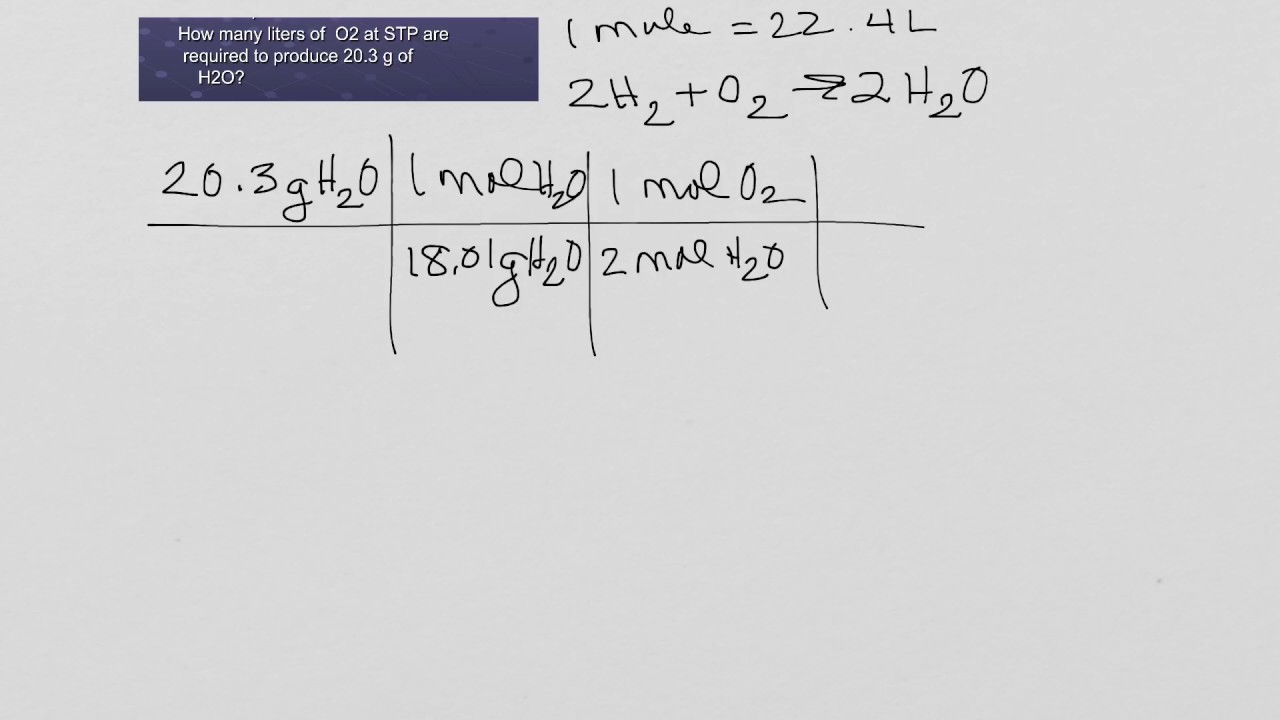 How many liters of O2 at STP are
required to produce 20.3 g of
H2O?
1 mole = 22.4 L
2H₂ + O₂ → 2 H₂O
20.3 g H₂O | 1 mol H₂O | 1 mol O₂ |
18.01 g H₂O | 2 mol H₂O |